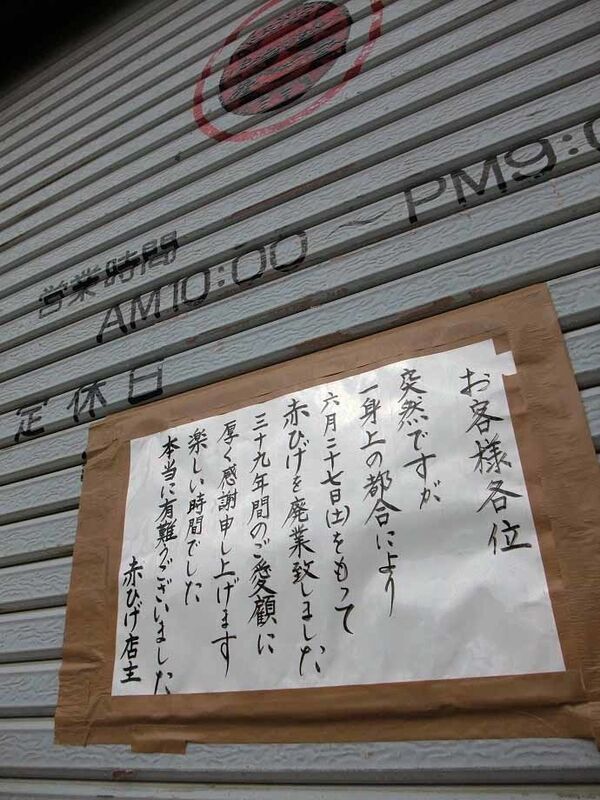 営業時間
AM10:00～PM9:0
定休日
お客様各位
突然ですが
一身上の都合により
六月二十七日(土)をもって
赤ひげを廃業致しました
三十九年間のご愛顧に
厚く感謝申し上げます
楽しい時間でした
本当に有難うございました
赤ひげ店主